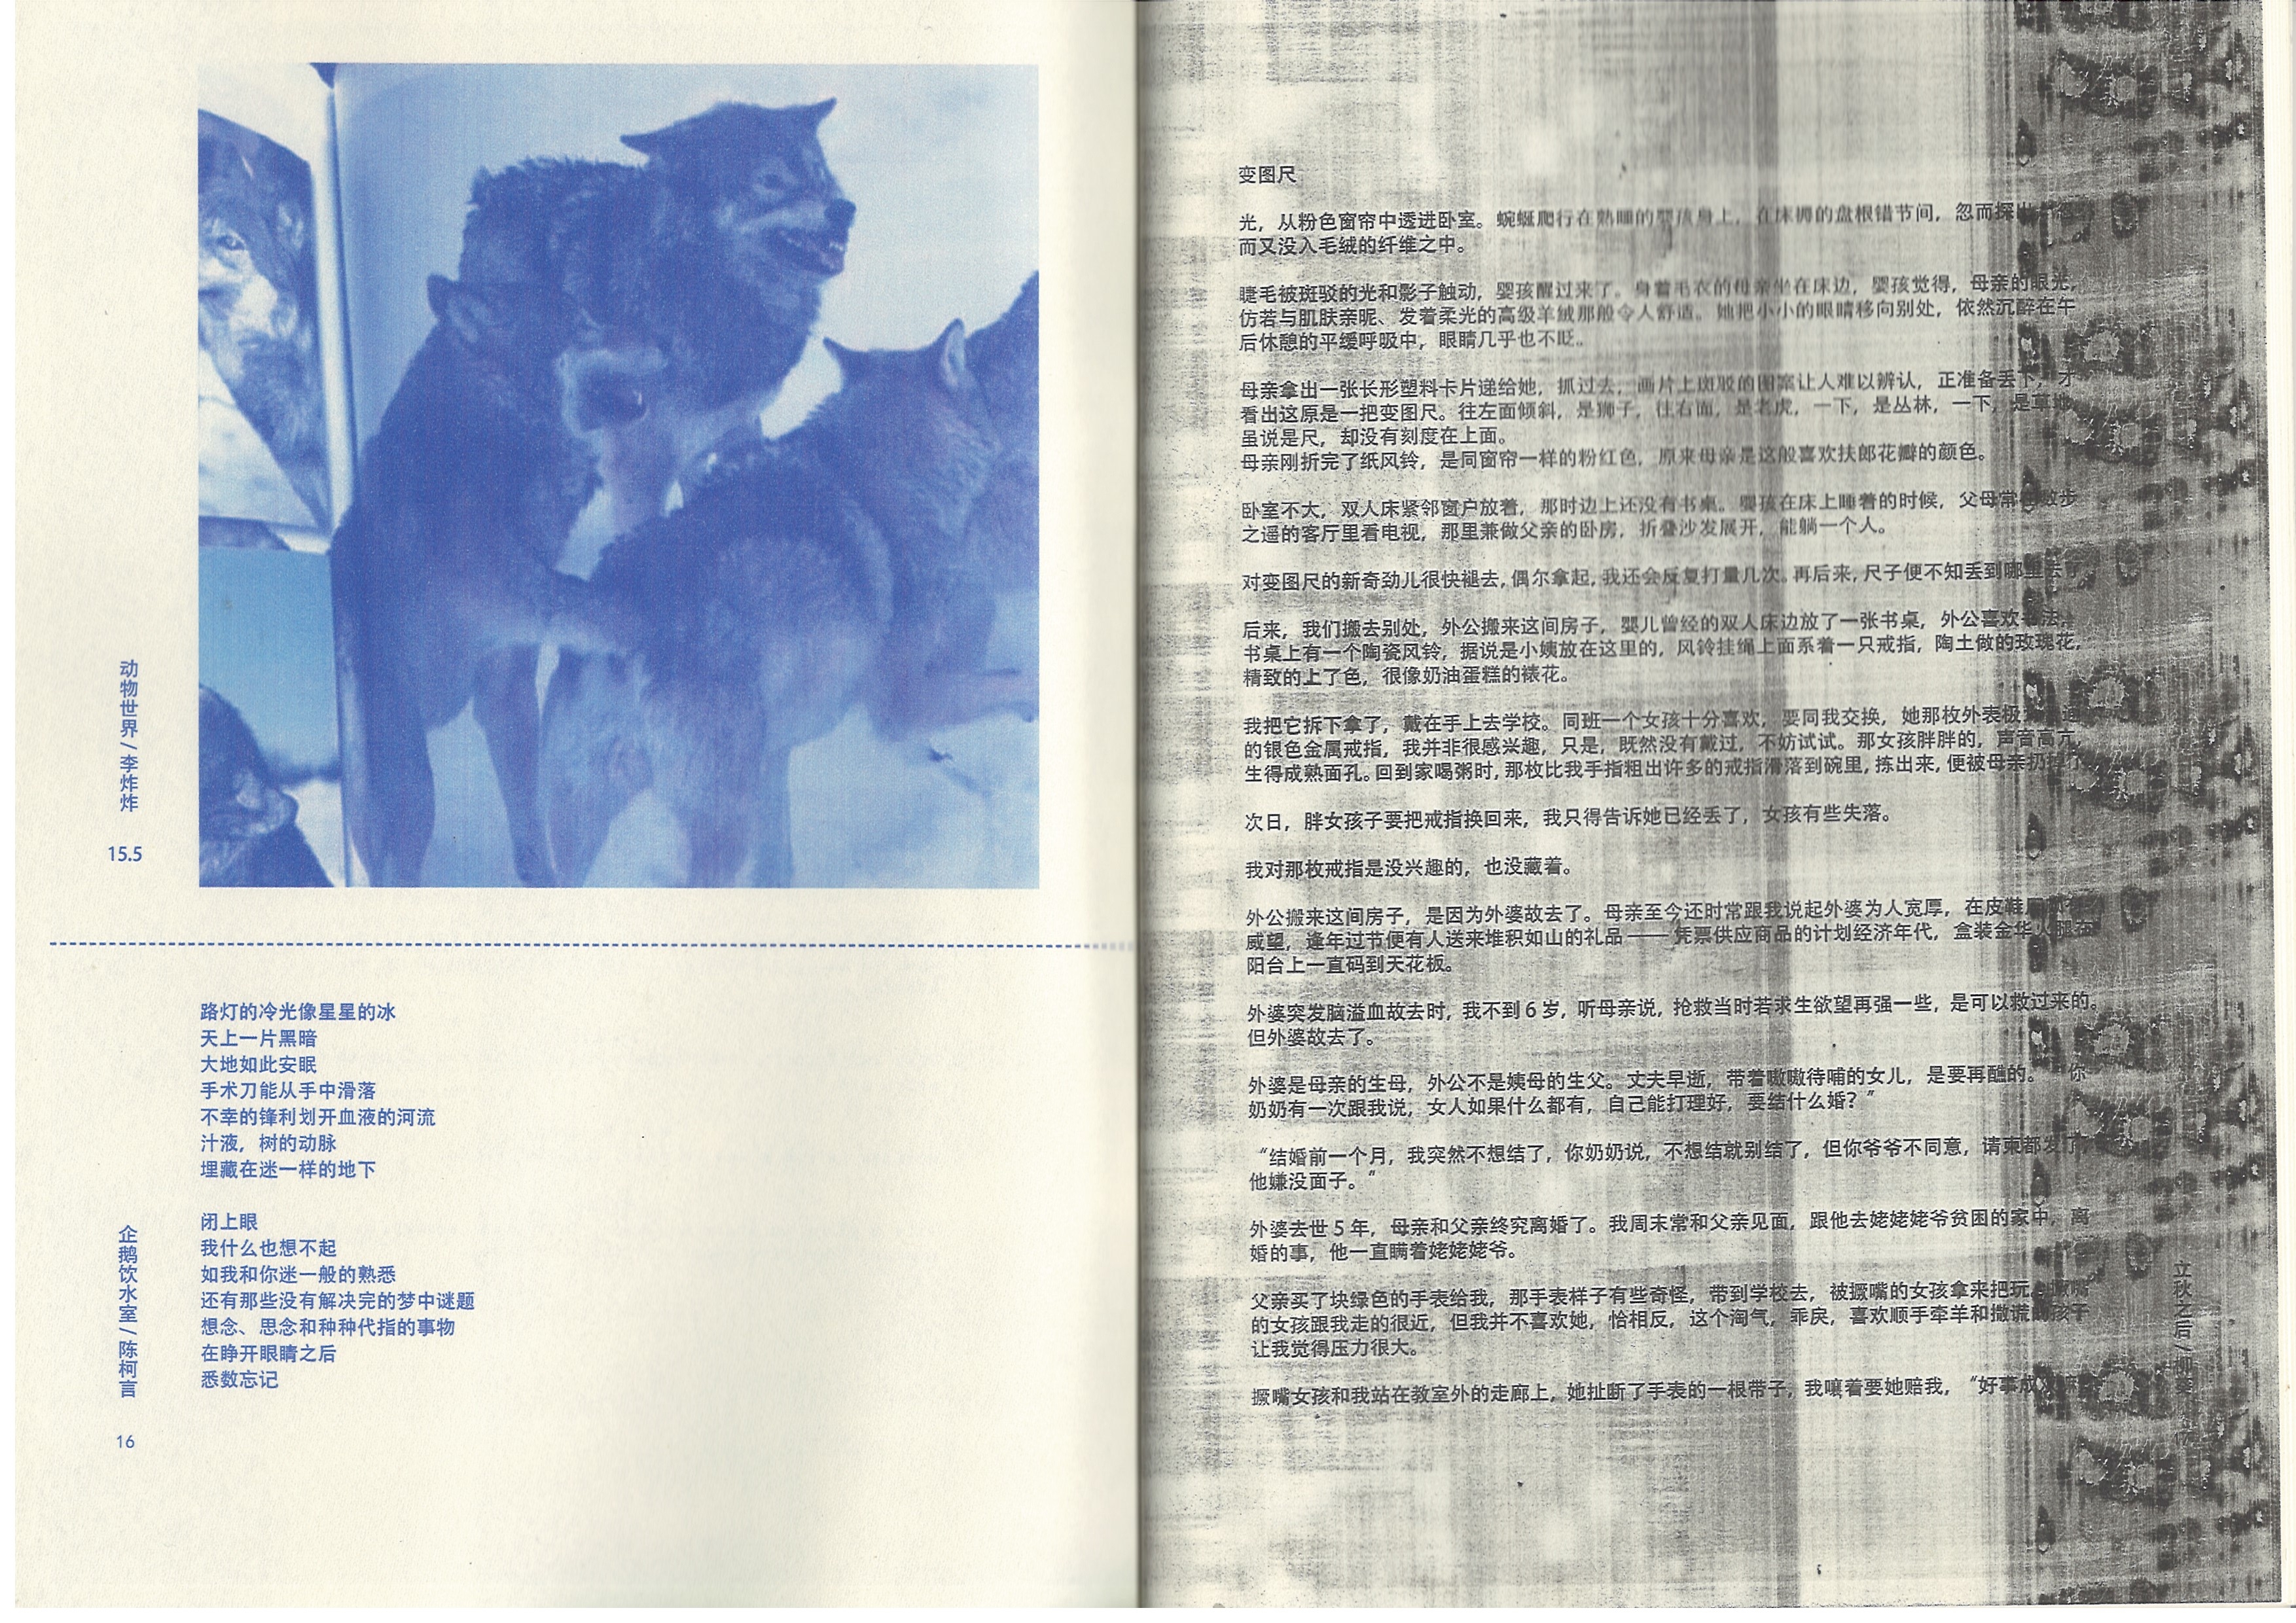 动物世界/李炸炸
15.5
路灯的冷光像星星的冰
天上一片黑暗
大地如此安眠
手术刀能从手中滑落
不幸的锋利划开血液的河流
汁液，树的动脉
埋藏在迷一样的地下
闭上眼
我什么也想不起
如我和你迷一般的熟悉
还有那些没有解决完的梦中谜题
想念、思念和种种代指的事物
在睁开眼睛之后
悉数忘记
企鹅饮水室/陈柯言
16
变图尺
光，从粉色窗帘中透进卧室。蜿蜒爬行在熟睡的婴孩身上，在床褥的盘根错节间，忽而探出
而又没入毛绒的纤维之中。
睫毛被斑驳的光和影子触动，婴孩醒过来了。身着毛衣的母亲坐在床边，婴孩觉得，母亲的眼光，
仿若与肌肤亲昵、发着柔光的高级羊绒那般令人舒适。她把小小的眼睛移向别处，依然沉醉在午
后休憩的平缓呼吸中，眼睛几乎也不眨。
母亲拿出一张长形塑料卡片递给她，抓过去，画片上斑驳的图案让人难以辨认，正准备丢下，才
看出这原是一把变图尺。往左面倾斜，是狮子，往右面，是老虎，一下，是丛林，一下，是草地。
虽说是尺，却没有刻度在上面。
母亲刚折完了纸风铃，是同窗帘一样的粉红色，原来母亲是这般喜欢扶郎花瓣的颜色。
卧室不大，双人床紧邻窗户放着，那时边上还没有书桌。婴孩在床上睡着的时候，父母常在散步
之遥的客厅里看电视，那里兼做父亲的卧房，折叠沙发展开，能躺一个人。
对变图尺的新奇劲儿很快褪去，偶尔拿起，我还会反复打量几次。再后来，尺子便不知丢到哪里去了
后来，我们搬去别处，外公搬来这间房子，婴儿曾经的双人床边放了一张书桌，外公喜欢书法，
书桌上有一个陶瓷风铃，据说是小姨放在这里的，风铃挂绳上面系着一只戒指，陶土做的玫瑰花，
精致的上了色，很像奶油蛋糕的裱花。
我把它拆下拿了，戴在手上去学校。同班一个女孩十分喜欢，要同我交换，她那枚外表极
的银色金属戒指，我并非很感兴趣，只是，既然没有戴过，不妨试试。那女孩胖胖的，声音高亢，
生得成熟面孔。回到家喝粥时，那枚比我手指粗出许多的戒指滑落到碗里，拣出来，便被母亲扔掉了
次日，胖女孩子要把戒指换回来，我只得告诉她已经丢了，女孩有些失落。
我对那枚戒指是没兴趣的，也没藏着。
外公搬来这间房子，是因为外婆故去了。母亲至今还时常跟我说起外婆为人宽厚，在皮鞋
威望，逢年过节便有人送来堆积如山的礼品——凭票供应商品的计划经济年代，盒装金华火腿在
阳台上一直码到天花板。
外婆突发脑溢血故去时，我不到6岁，听母亲说，抢救当时若求生欲望再强一些，是可以救过来的。
但外婆故去了。
外婆是母亲的生母，外公不是姨母的生父。丈夫早逝，带着嗷嗷待哺的女儿，是要再醮的。“你
奶奶有一次跟我说，女人如果什么都有，自己能打理好，要结什么婚？”
“结婚前一个月，我突然不想结了，你奶奶说，不想结就别结了，但你爷爷不同意，请柬都发了，
他嫌没面子。”
外婆去世5年，母亲和父亲终究离婚了。我周末常和父亲见面，跟他去姥姥姥爷贫困的家中，离
婚的事，他一直瞒着姥姥姥爷。
父亲买了块绿色的手表给我，那手表样子有些奇怪，带到学校去，被撅嘴的女孩拿来把玩，撅嘴
的女孩跟我走的很近，但我并不喜欢她，恰相反，这个淘气，乖戾，喜欢顺手牵羊和撒谎的孩子
让我觉得压力很大。
撅嘴女孩和我站在教室外的走廊上，她扯断了手表的一根带子，我嚷着要她赔我，“好事成
立秋之后/柳